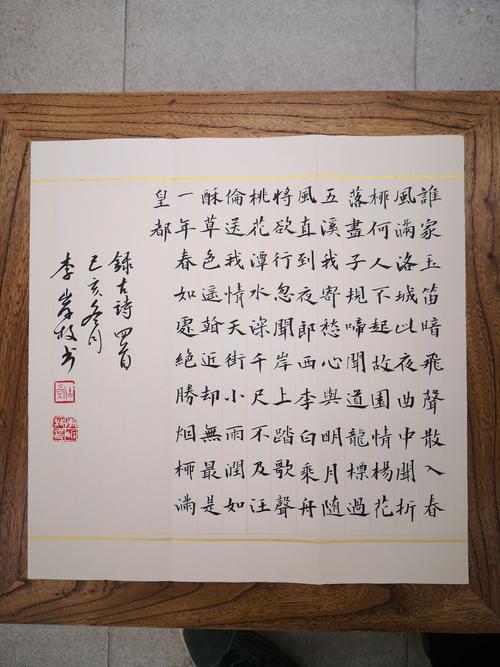 誰家玉笛暗飛聲散入春
風滿洛城此夜曲中聞折
柳何人不起故園情楊花
落盡子規啼聞道龍標過
五溪我寄愁心與明月隨
風直到夜郎西李白乘舟
將欲行忽聞岸上踏歌聲
桃花潭水深千尺不及汪
倫送我情天街小雨潤如
酥草色遥看近却無最是
一年春如處絕勝烟柳滿
皇都
錄古詩四首
己亥冬月
李枝书